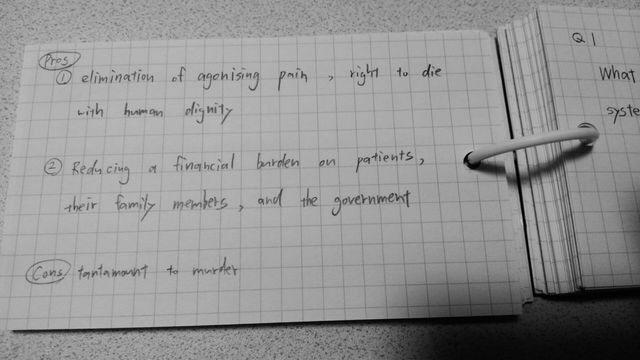 Pros
① elimination of agonising pain, right to die
with human dignity
② Reducing a financial burden on patients,
their family members, and the government
Cons tantamount to murder
Q1
What
syste